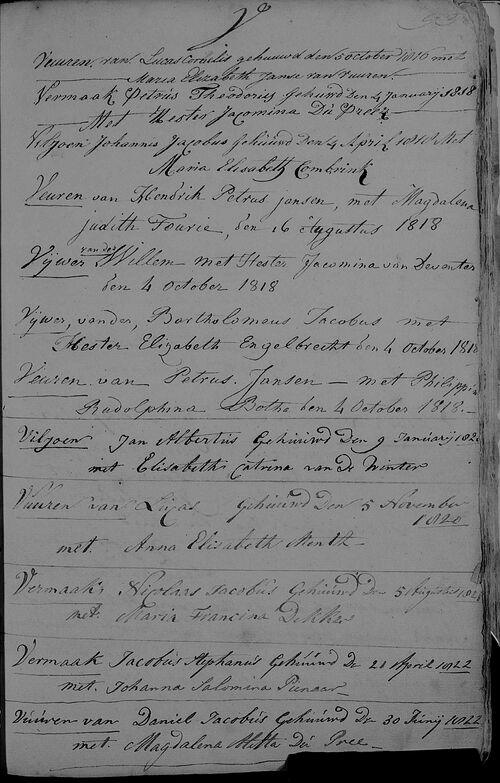 V
Vuuren, van Lucas Cornelis gehuuwd den 5 october 1816 met
Maria Elizabeth Janse van vuuren.
Vermaak Petrus Theodorus Gehuurd Den 4 Januarij 1818
Met Hester Jacomina Du Preez
Viljoen Johannis Jacobus Gehuurd Den 4 April 1818 Met
Maria Elisabeth Combrink
Veuren van Hendrik Petrus jansen, met Magdalena
judith Fourie, den 16 Augustus 1818
Vijwer van der Willem met Hester Jacomina van Deventer
den 4 October 1818
Vijwer, vander, Bartholomeus Jacobus met
Hester Elizabeth Engelbrecht den 4 October 1818
Veuren van Petrus Jansen — met Philippina
Rudolphina Botha den 4 October 1818.
Viljoen Jan Albertus Gehuuwd Den 9 Januarij
met Elisabeth Catrina van De Winter
Vuuren van Lucas Gehuurd Den 5 November
1820
met. Anna Elisabeth
Vermaak, Nicolaas Jacobus Gehuurd De 5 Augustus
met. Maria Francina Dekker
Vermaak Jacobus Stephanus Gehuurd De 21 April 1822
met. Johanna Salomina Pienaar
Vuuren van Daniel Jacobus Gehuurd De 30 Junij 1822
met. Magdalena Aletta Du Pree